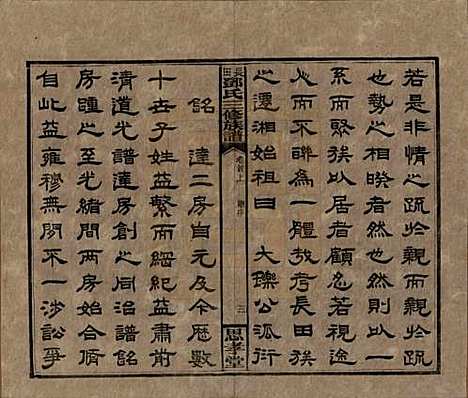 若是非情之疏於親而親於疏
也勢之相暌者然也然則人
系而緊族以居者顧忍若視途
人而不聯為一體哉考長田族
之遷湘始祖曰　大鑠公派衍
長田鄧氏三修族譜
卷首上　三
思孝堂
銘　達二房自元及今歷數
十世子姓益繁而綱紀益肅前
清道光譜達房創之同治譜銘
房踵之至光緒間兩房始合脩
自此益雍穆無間不一涉訟爭